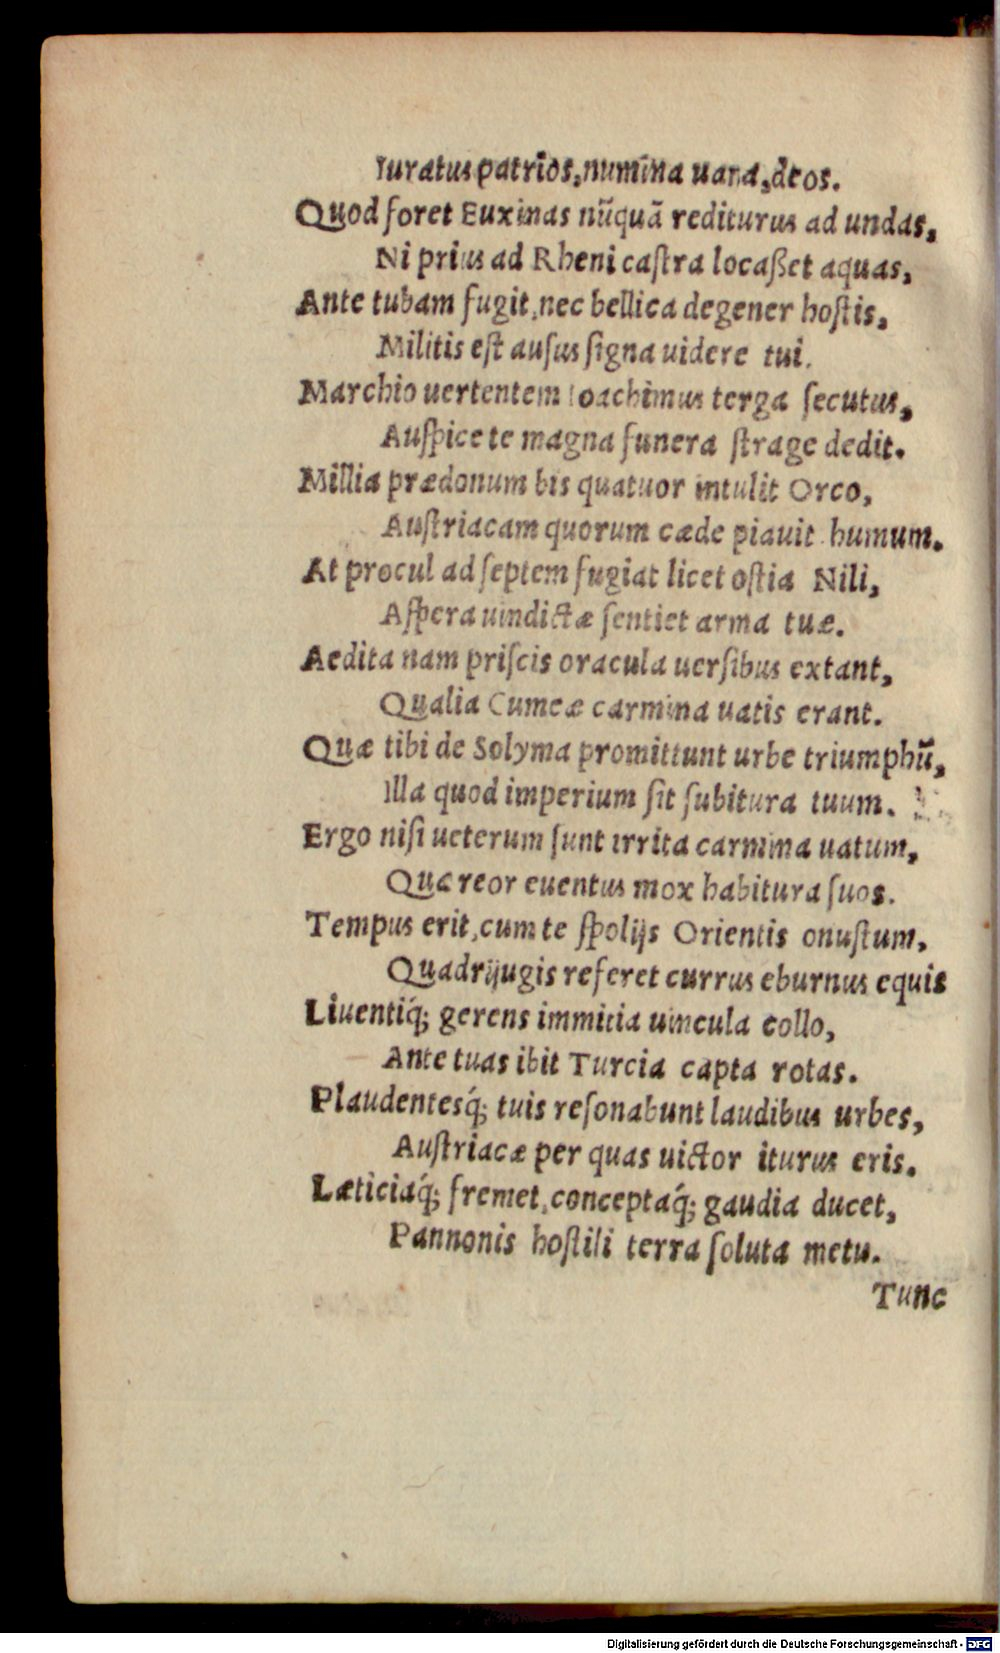 Iuratus patrios, numina uana, deos.
Quod foret Euxinas nũquã rediturus ad undas,
Ni prius ad Rheni castra locaßet aquas,
Ante tubam fugit, nec bellica degener hostis,
Militis est ausus signa uidere tui.
Marchio uertentem Ioachimus terga secutus,
Auspice te magna funera strage dedit.
Millia prædonum bis quatuor intulit Orco,
Austriacam quorum cæde piauit humum.
At procul ad septem fugiat licet ostia Nili,
Aspera uindictæ sentiet arma tuæ.
Aedita nam priscis oracula uersibus extant,
Qualia Cumeæ carmina uatis erant.
Quæ tibi de Solyma promittunt urbe triumphũ,
Illa quod imperium sit subitura tuum.
Ergo nisi ueterum sunt irrita carmina uatum,
Quæ reor euentus mox habitura suos.
Tempus erit, cum te spolijs Orientis onustum,
Quadrijugis referet currus eburnus equis
Liuentiq́; gerens immitia uincula collo,
Ante tuas ibit Turcia capta rotas.
Plaudentesq́; tuis resonabunt laudibus urbes,
Austriacæ per quas uictor iturus eris.
Læticiaq́; fremet, conceptaq́; gaudia ducet,
Pannonis hostili terra soluta metu.
Tunc
Digitalisierung gefördert durch die Deutsche Forschungsgemeinschaft - DFG